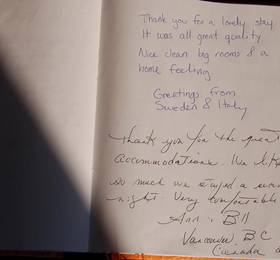 Thank you for a lovely stay
It was all great quality
Nice clean big rooms & a
home feeling
Greetings from
Sweden & Italy
Thank you for the great
accommodations. We
so much we stayed a
night Very comfortable
Ann & Bill
Vancouver, BC
Canada